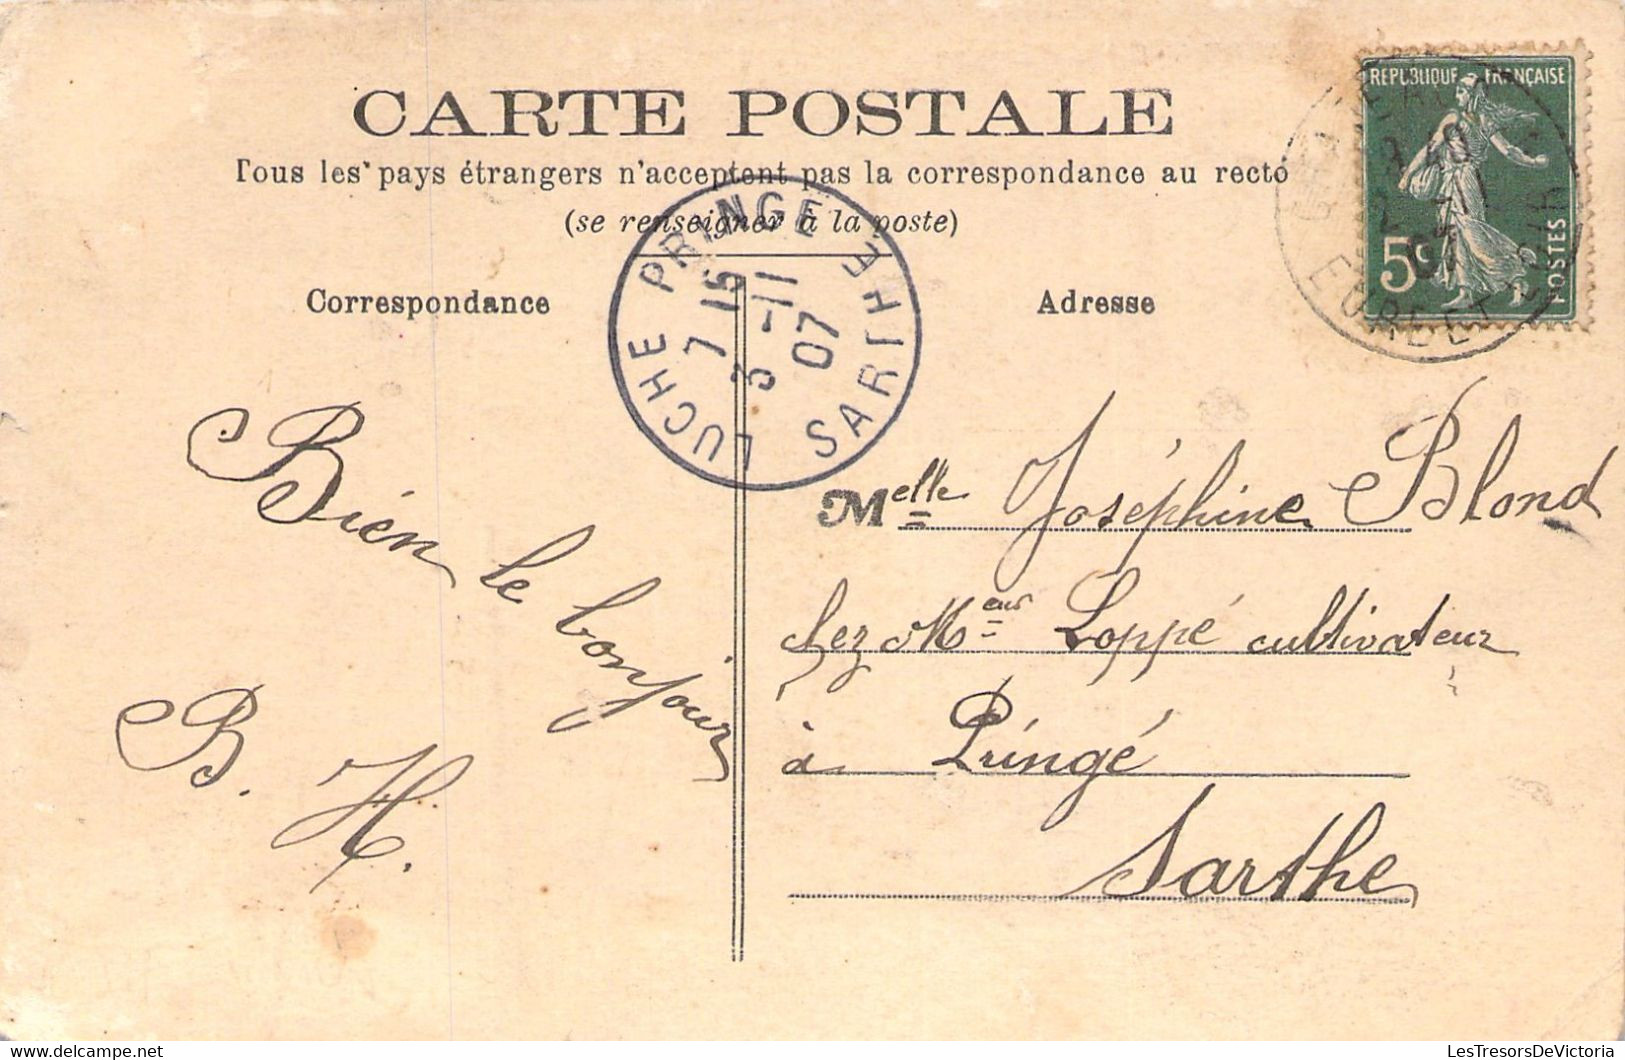 CARTE POSTALE
Tous les pays étrangers n'acceptent pas la correspondance au recto
(se renseigner à la poste)
Correspondance
Adresse
REPUBLIQUE FRANÇAISE
5c
POSTES
EURE ET LOIR
LUCHE PRINGE
SARTHE
7 15
3 -11
07
Bien le bonjour
B. H.
Melle Joséphine Blond
chez Meur Loppé cultivateur
à Pringé
Sarthe
LesTresorsDeVictoria
LesTresorsDeVictoria.delcampe.net